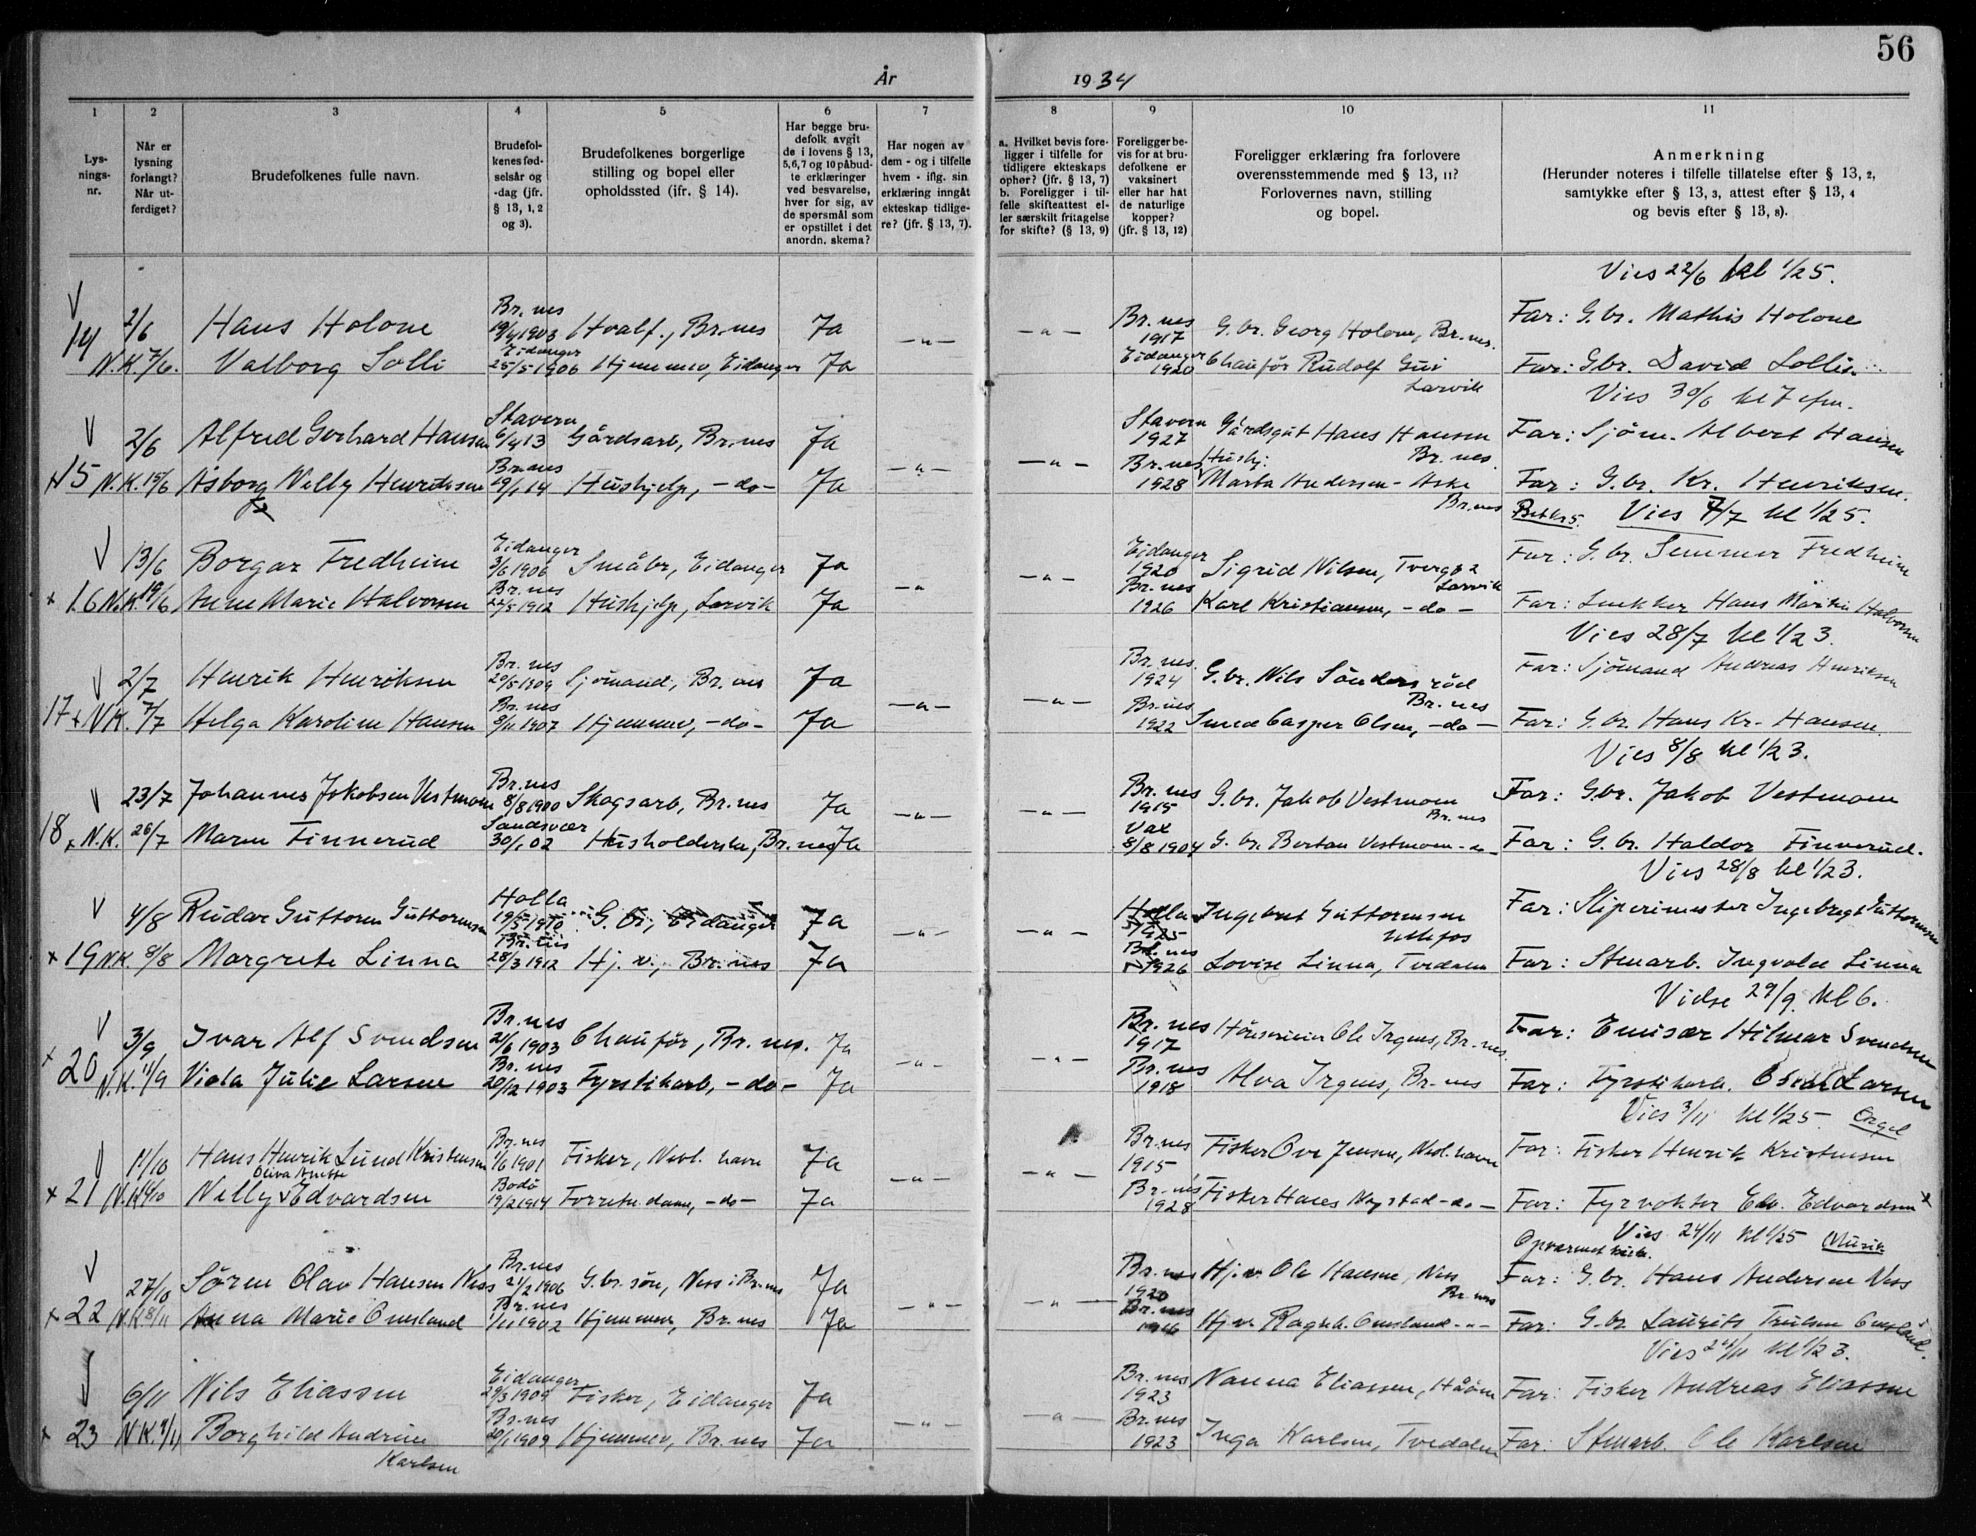 56
År 1934
1 2 3 4 5 6 7 8 9 10 11
Lysningsnr.
Når er lysning forlangt? Når utferdiget?
Brudefolkenes fulle navn.
Brudefolkenes fødselsår og -dag (jfr. § 13, 1, 2 og 3).
Brudefolkenes borgerlige stilling og bopel eller opholdssted (jfr. § 14).
Har begge brudefolk avgit de i lovens § 13, 5, 6, 7 og 10 påbudte erklæringer ved besvarelse, hver for sig, av de spørsmål som er opstillet i det anordn. skema?
Har nogen av dem - og i tilfelle hvem - iflg. sin erklæring inngått ekteskap tidligere? (jfr. § 13, 7).
a. Hvilket bevis foreligger i tilfelle for tidligere ekteskaps ophør? (jf. § 13, 7) b. Foreligger i tilfelle skifteattest eller særskilt fritagelse for skifte? (§ 13, 9)
Foreligger bevis for at brudefolkene er vaksinert eller har hat de naturlige kopper? (jfr. § 13, 12)
Foreligger erklæring fra forlovere overensstemmende med § 13, 11? Forlovernes navn, stilling og bopel.
Anmerkning (Herunder noteres i tilfelle tillatelse efter § 13, 2, samtykke efter § 13, 3, attest efter § 13, 4 og bevis efter § 13, 8).
Vies 22/6 kl 1/25.
14 2/6 Hans Holone Br.nes 19/4 1903 Hvalf., Br.nes Ja Br.nes 1917 G.br. Georg Holone, Br.nes. Far: G.br. Mathis Holone
N.K. 7/6. Valborg Solli Eidanger 25/5 1906 Hjemmev, Eidanger Ja Eidanger 1920 Chauför Rudolf Larvik Far: Gbr. David Solli
Vies 30/6 kl 7 efm.
2/6 Alfred Gerhard Hansen Stavern 6/4 13 Gårdsarb, Br.nes Ja Stavern 1927 Gårdsgut Hans Hansen Br.nes. Far: Sjøm. Albert Hansen
15 N.K. 15/6 Åsborg Nelly Henriksen Br.nes 19/1 14 Hushjelp, -do- Ja Br.nes 1928 Hushj. Marta Andersen - Aske Br.nes Far: G.br. Kr. Henriksen.
Vies 7/7 kl 1/25.
13/6 Borgar Fredheim Eidanger 3/6 1906 Småbr, Eidanger Ja Eidanger 1920 Sigrid Nilsen, Tverg. 2 Larvik Far: G.br. Fredheim
16 N.K. 19/6 Anne Marie Halvorsen Br.nes 22/5 1912 Hushjelp, Larvik Ja Br.nes 1926 Karl Kristiansen, -do- Far: Hans Martin Halvorsen
Vies 28/7 kl 1/23.
2/7 Henrik Henriksen Br.nes 20/5 1909 Sjömand, Br.nes Ja Br.nes. 1924 G.br. Nils Sönders röd Br.nes Far: Sjömand Andreas Henriksen
17 N.K. 7/7 Helga Karoline Hansen Br.nes 8/11 1907 Hjemmev, -do- Ja Br.nes 1922 Smed Casper Olsen, -do- Far: G.br. Hans Kr. Hansen.
Vies 8/8 kl 1/23.
23/7 Johannes Jakobsen Vestmoen Br.nes 8/8 1900 Skogsarb, Br.nes Ja Br.nes 1915 G.br. Jakob Vestmoen Br.nes Far: G.br. Jakob Vestmoen
18 N.K. 26/7 Maren Finnerud Sandsvær 30/1 02 Husholderske, Br.nes Ja Vax 8/8 1904 G.br. Bertan Vestmoen -"- Far: G.br. Haldor Finnerud.
Vies 28/8 kl 1/23.
4/8 Reidar Guttorm Guttormsen Holla 19/5 1910 G.br, Eidanger Ja Holla 1925 Ingebret Guttormsen Ulefos Far: Sliperimester Ingebregt Guttormsen
19 N.K. 8/8 Margrete Linna Br.nes 28/3 1912 Hj.v., Br.nes Ja Br.nes 1926 Lovise Linna, Tvedalen Far: Stenarb. Ingvald Linna
Vielse 29/9 kl 6.
3/9 Ivar Alf Svendsen Br.nes 21/6 1903 Chauför, Br.nes. Ja Br.nes 1917 Ole Irgens, Br.nes. Far: Emisær Hilmar Svendsen
20 N.K. 11/9 Viola Julie Larsen Br.nes 20/12 1903 Fyrstikarb, -do- Ja Br.nes 1918 Alva Irgens, Br.nes Far: Fyrstikarb. Larsen
Vies 3/11 kl 1/25 Orgel
11/10 Hans Henrik Lund Kristensen Br.nes 1/6 1901 Fisker, Nevl. havn Ja Br.nes 1915 Fisker Ove Jensen, Nevl. havn Far: Fisker Henrik Kristensen
Oliva Anette
21 N.K. Nelly Edvardsen Bodö 19/2 1914 Forretn.dame, -do- Ja Br.nes 1928 Fisker Hans Nystad -do- Far: Fyrvokter Edv. Edvardsen
Vies 24/11 kl 1/25 Musik
Opvarmet kirke.
27/10 Sören Olav Hansen Ness Br.nes 21/2 1906 G.br.sön, Ness i Br.nes Ja Br.nes 1920 Hj.v. Ole Hansen, Ness Br.nes Far: G.br. Hans Andersen Ness
22 N.K. 8/11 Anna Marie Omsland Br.nes 1/11 1902 Hjemmev, Br.nes Ja Br.nes 1916 Hj.v. Ragnh. Omsland -"- Far: G.br. Laurits Trulsen Omsland.
Vies 24/11 kl 1/23.
6/11 Nils Eliassen Eidanger 29/3 1909 Fisker, Eidanger Ja Br.nes 1923 Nanna Eliassen, Håöen Far: Fisker Andreas Eliassen
23 N.K. 9/11 Borghild Andrine Karlsen Br.nes 20/1 1909 Hjemmev, Br.nes Ja Br.nes 1923 Inga Karlsen, Tvedalen Far: Stenarb. Ole Karlsen